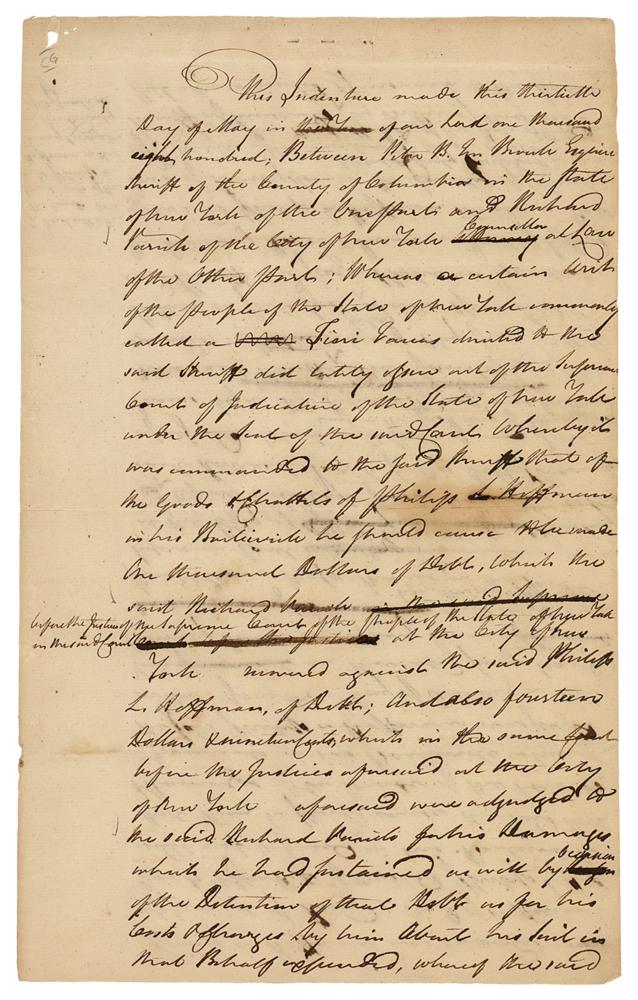 This Indenture made this thirtieth
Day of May in the Year of our Lord one thousand
eight hundred; Between Peter B. Ten Broeck Esquire
Sheriff of the County of Columbia in the State
of New York of the One Part and Richard
Varick of the City of New York Councillor at Law
of the Other Part; Whereas a certain Writ
of the People of the State of New York commonly
called a Fieri Facias directed to the
said Sheriff did lately issue out of the Supreme
Court of Judicature of the State of New York
under the Seal of the said Court Whereby it
was commanded to the said Sheriff that of
the Goods & Chattels of Philip L Hoffman
in his Bailiwick he should cause to be made
One thousand Dollars of Debt, which the
said Richard Varick in the said Supreme
before the Justices of the Supreme Court of the People of the State of New York
in the said Court at the City of New
York recovered against the said Philip
L. Hoffman, of Debt; And also fourteen
Dollars & nineteen Cents, which in the same Court
before the Justices aforesaid at the City
of New York aforesaid were adjudged to
the said Richard Varick for his Damages
which he had sustained as well by Occasion
of the Detention of that Debt as for his
Costs & Charges by him About his Suit in
that Behalf expended, whereof the said